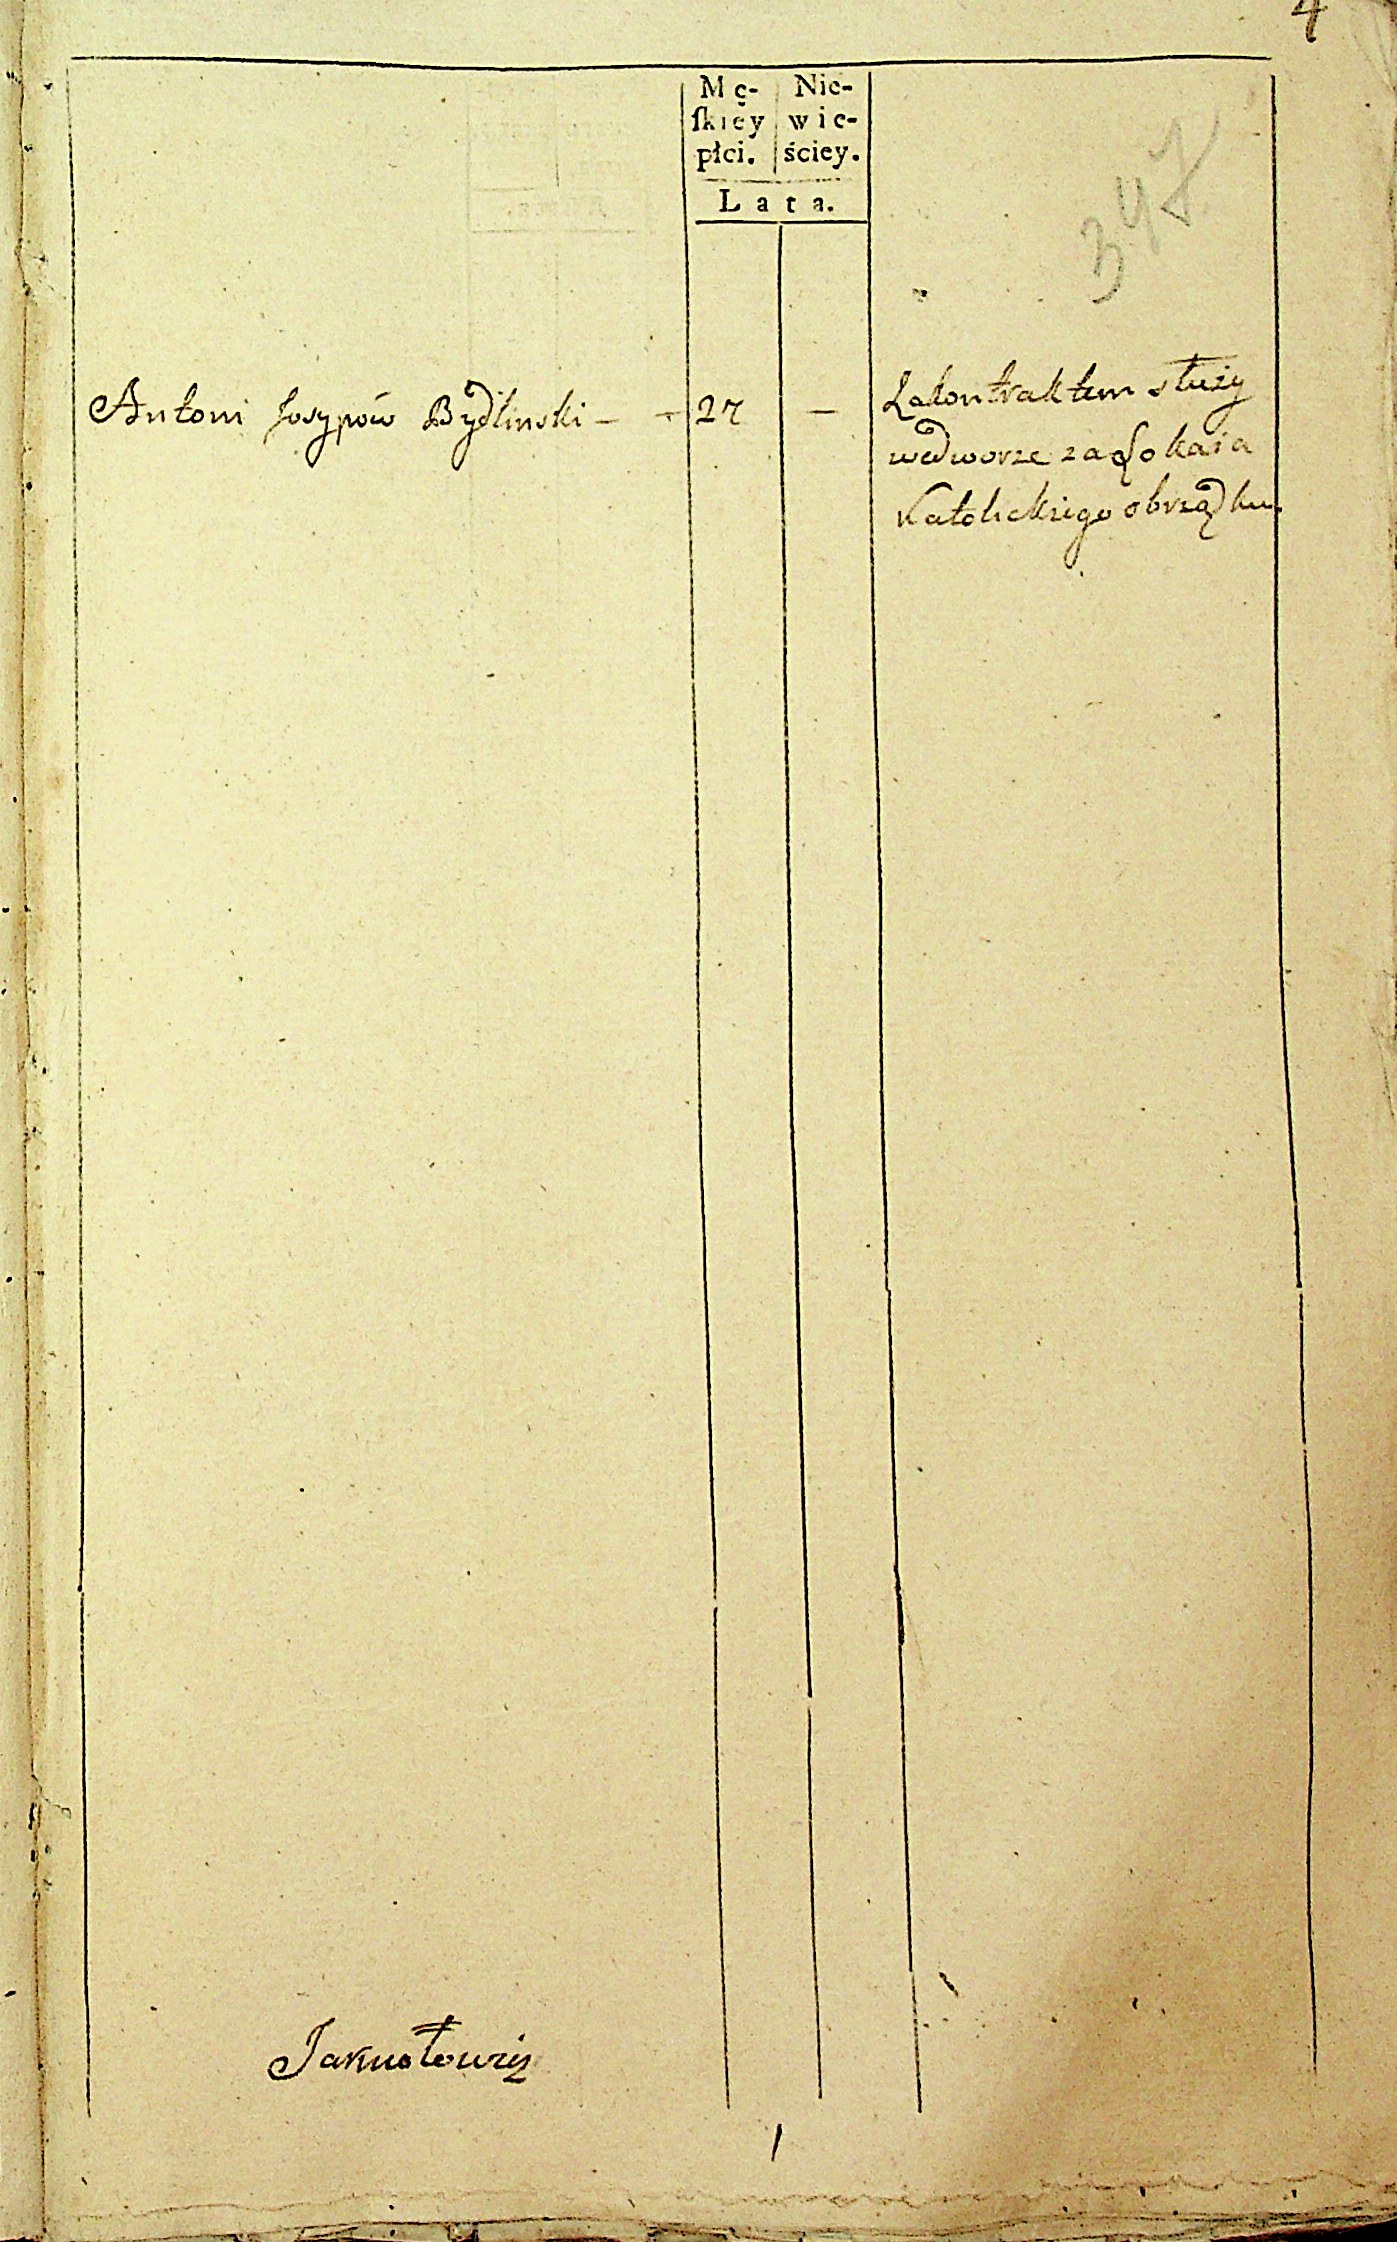 4
Mę- Nie-
ſkiey wie-
płci. ściey.
Lata.
347
Antoni Josypów Bydlinski — - 27 —
Zakontraktem służy
wedworze za Lokaia
Katolickiego obrządku.
1